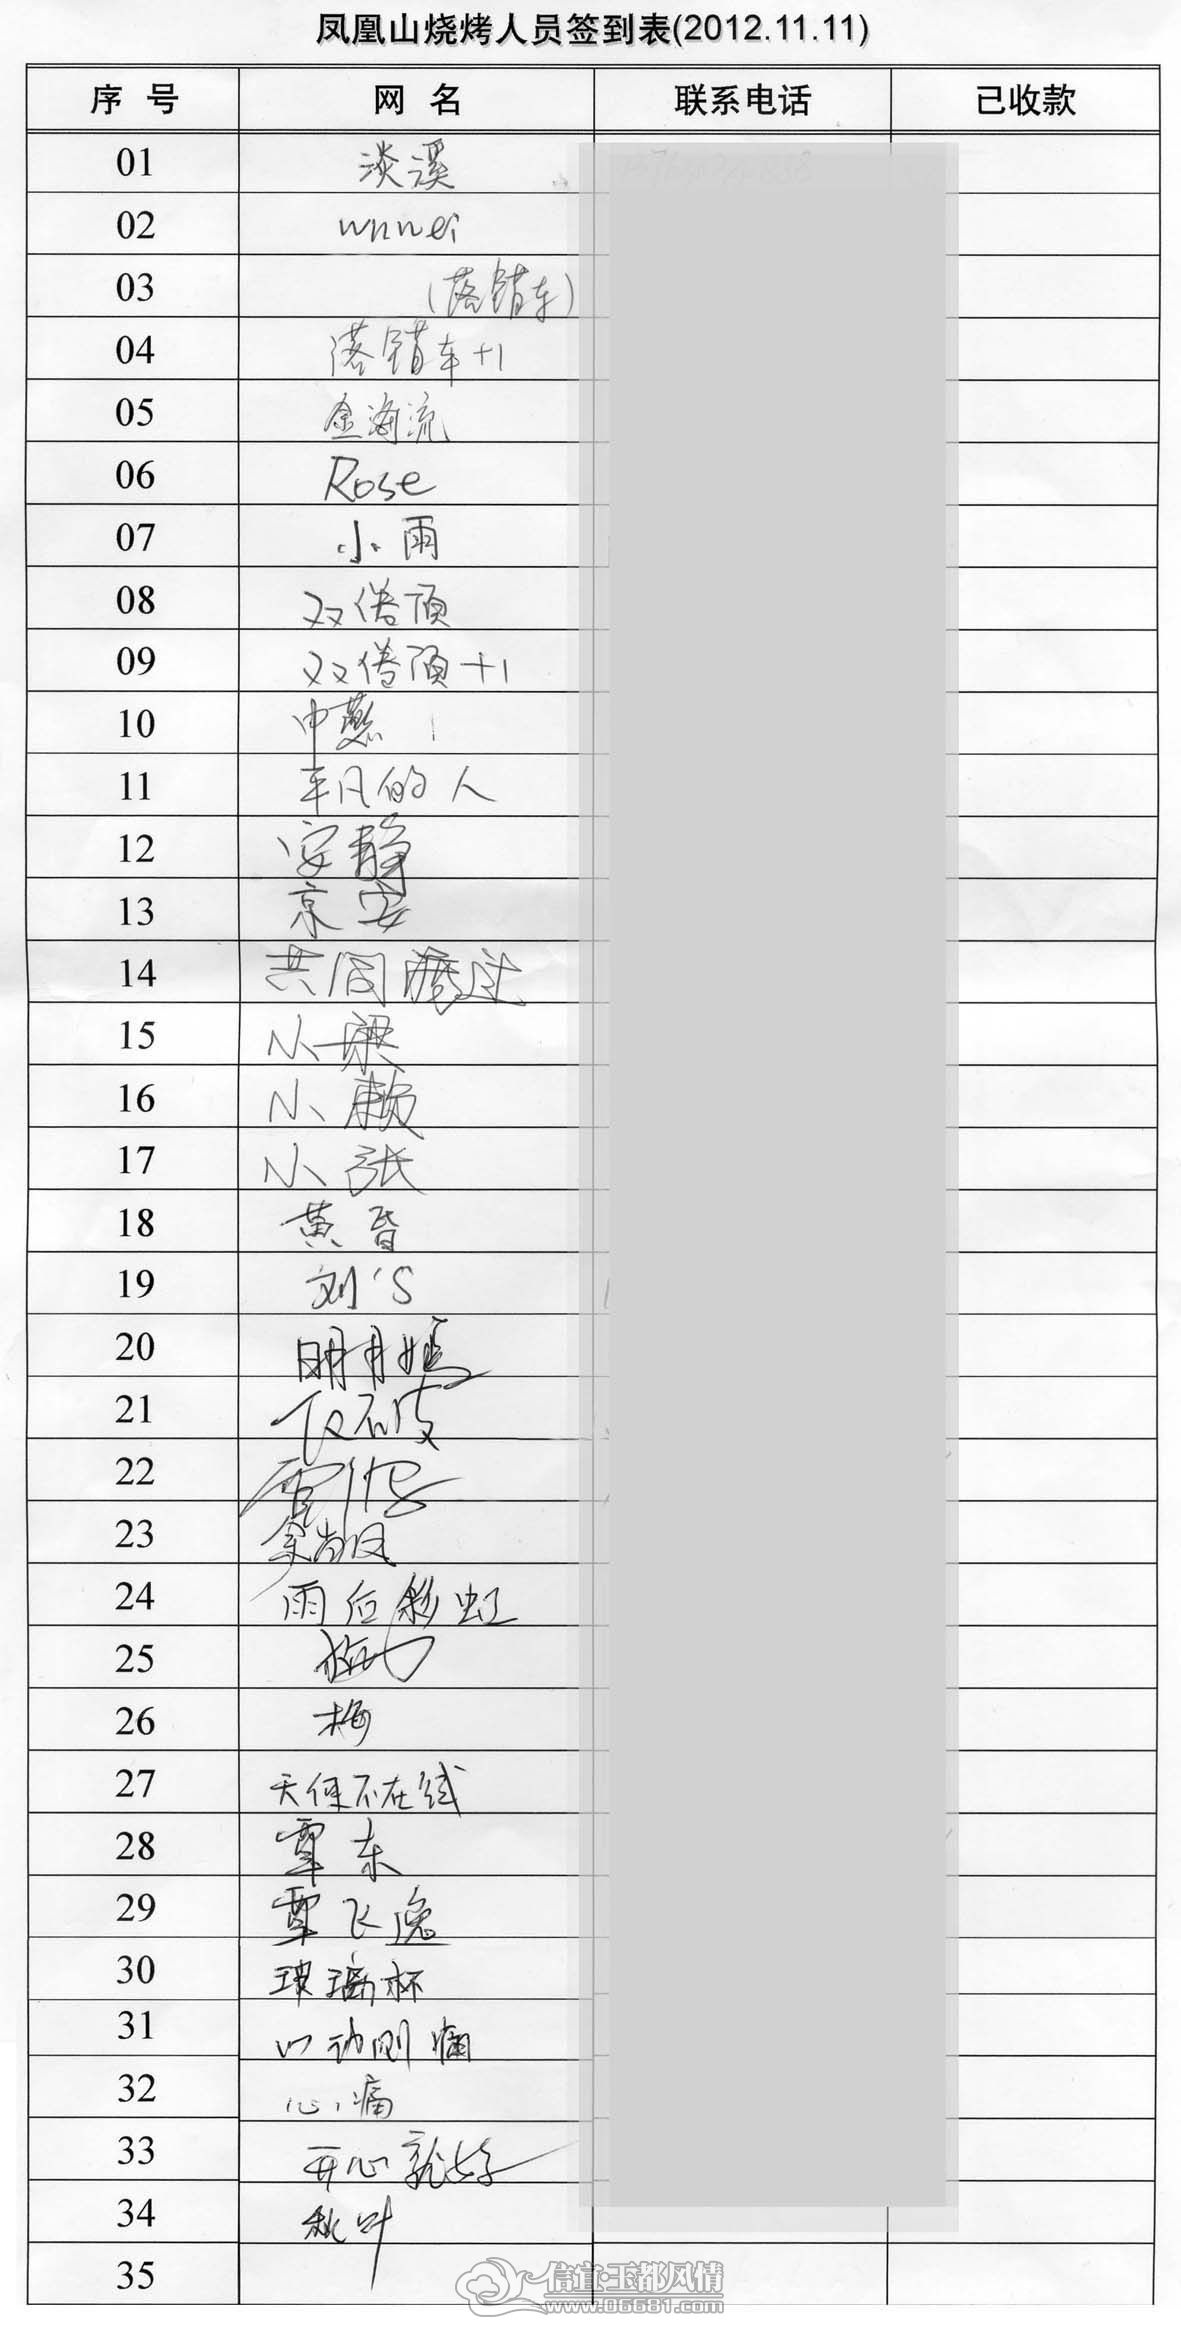 凤凰山烧烤人员签到表(2012.11.11)
序 号 网 名 联系电话 已收款
01 淡溪
02 wnwei
03 (落错车)
04 落错车+1
05 金海流
06 Rose
07 小雨
08 双倦顶
09 双倦顶+1
10 中
11 平凡的人
12 安静
13 京安
14 共同
15 小梁
16 小赖
17 小张
18 黄昏
19 刘's
20 明月
21
22
23
24 雨后彩虹
25
26 梅
27 天使不在线
28 覃东
29 覃飞逸
30 玻璃杯
31 心动则痛
32 心痛
33 开心就好
34 秋叶
35
信宜·玉都风情
www.06681.com